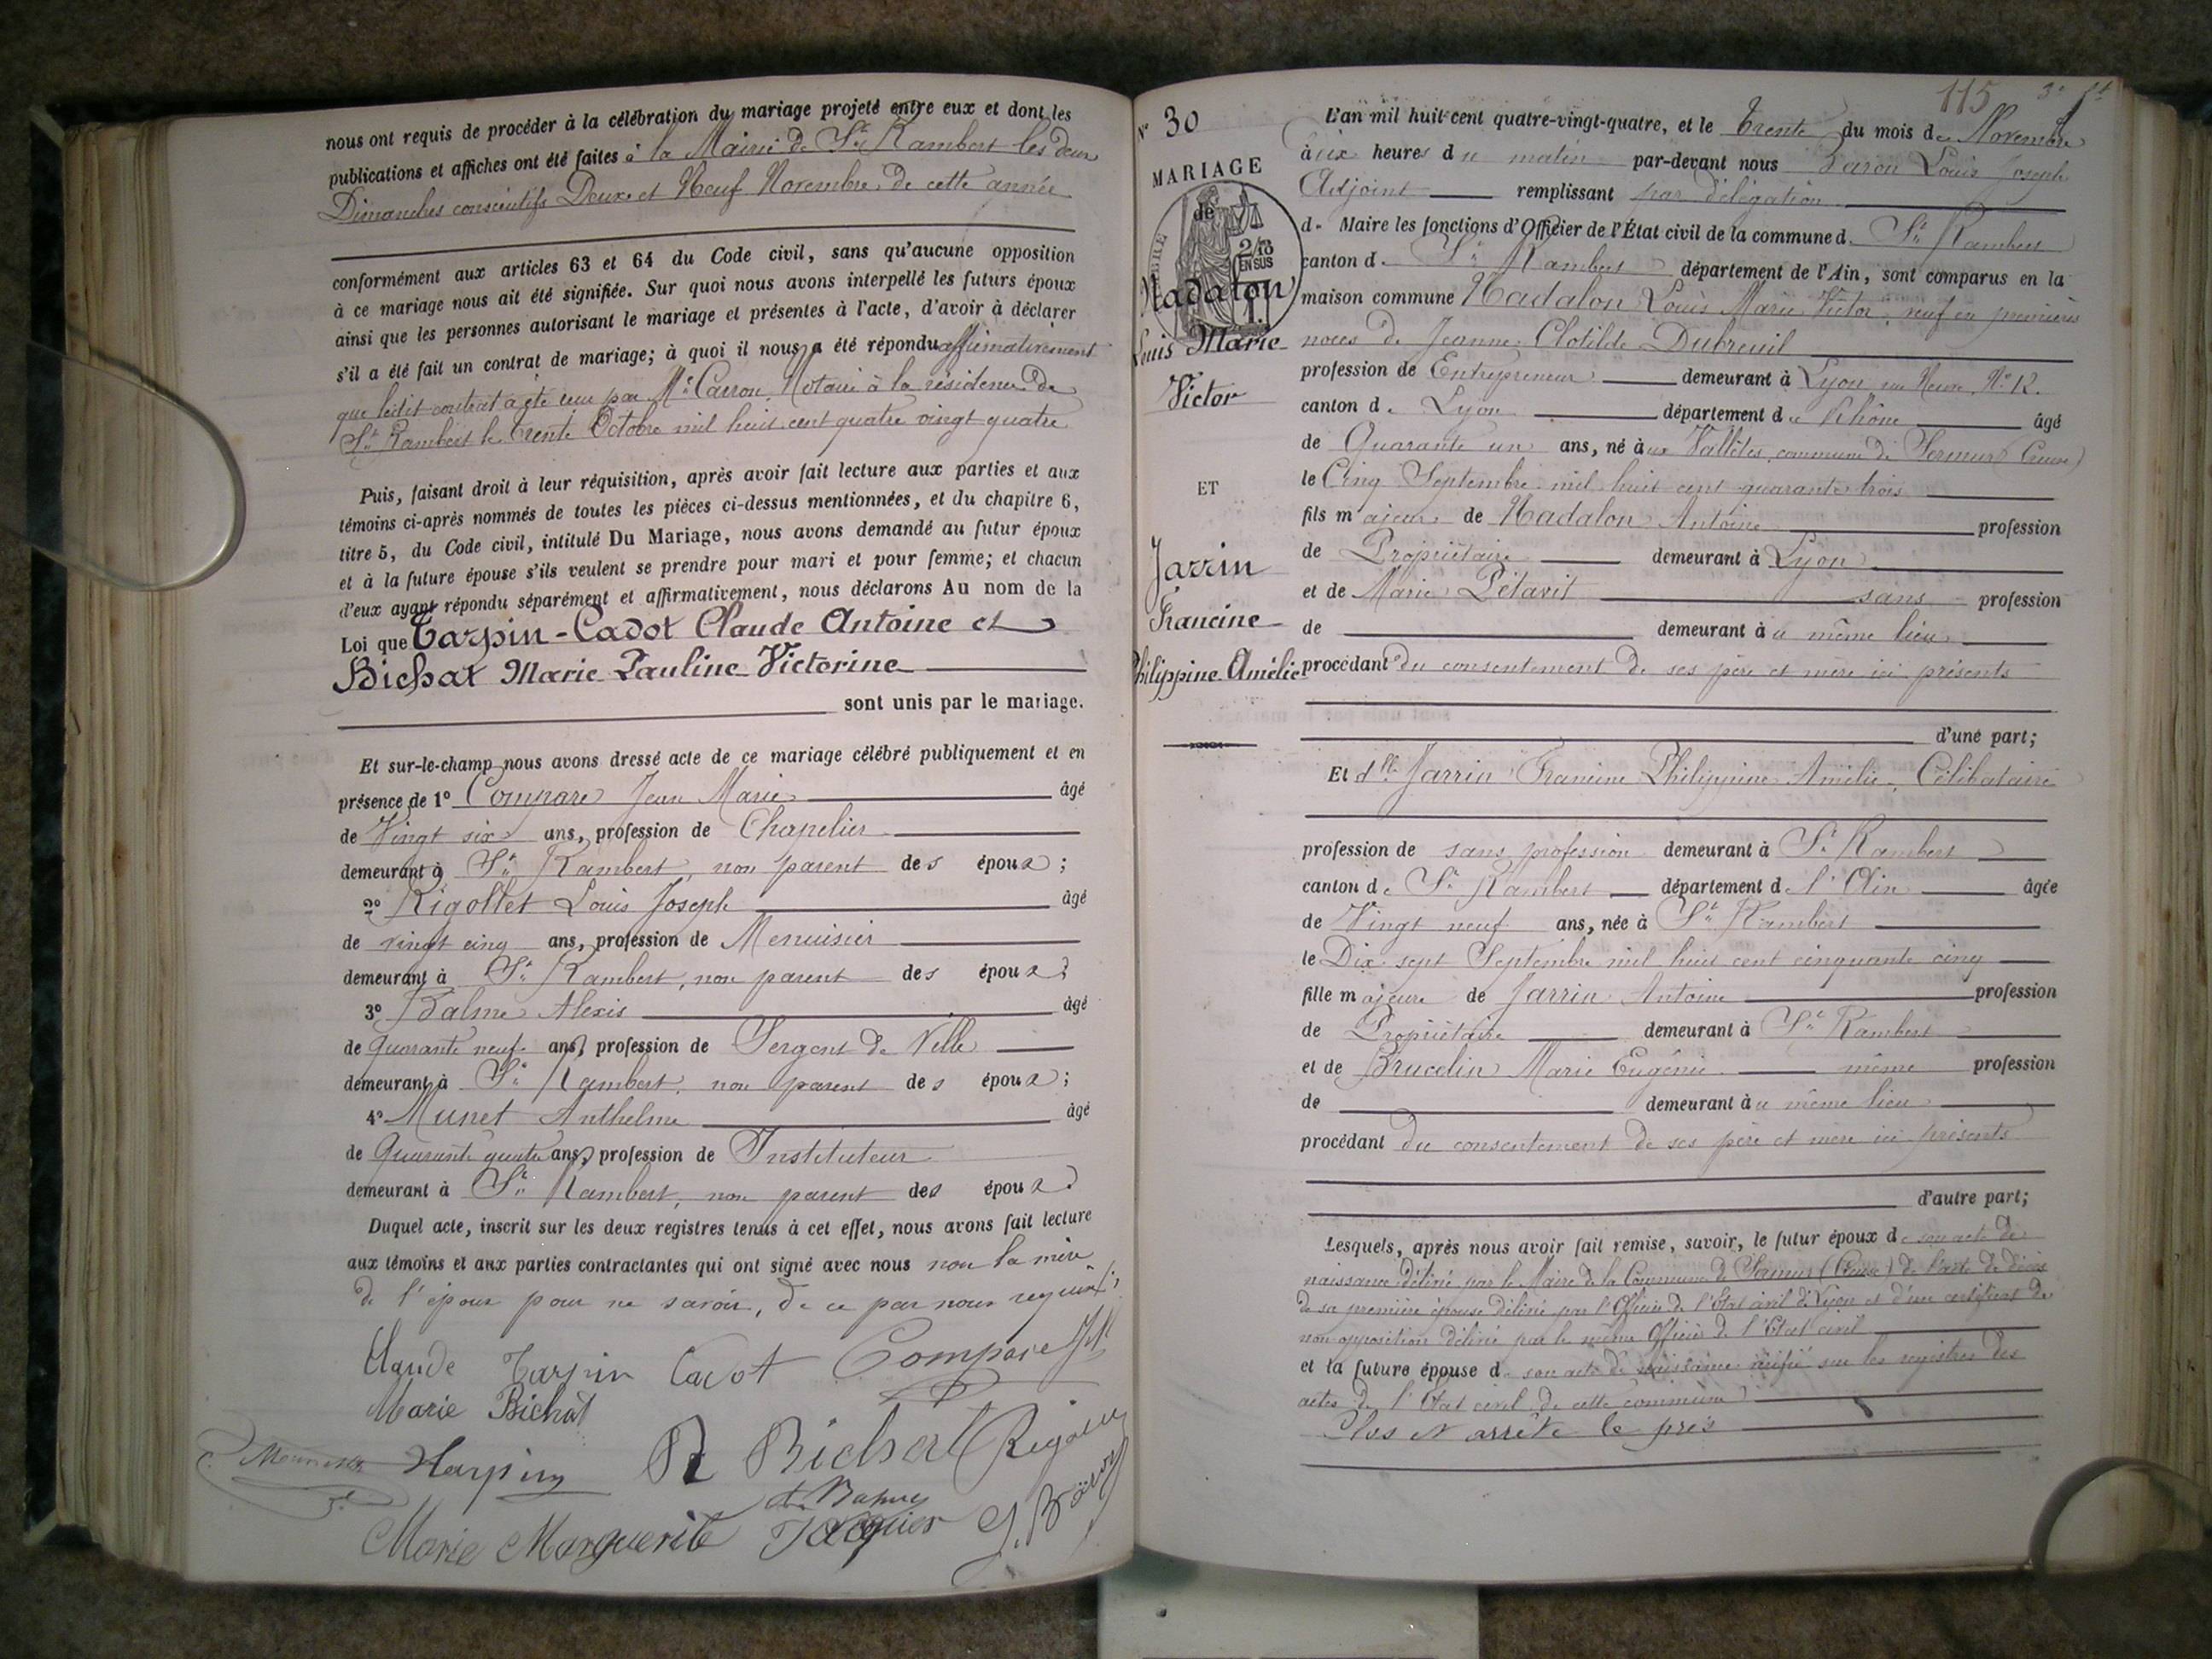 nous ont requis de procéder à la célébration du mariage projeté entre eux et dont les
publications et affiches ont été faites à la Mairie de St Rambert les deux
Dimanches consécutifs Deux et Neuf Novembre de cette année
conformément aux articles 63 et 64 du Code civil, sans qu'aucune opposition
à ce mariage nous ait été signifiée. Sur quoi nous avons interpellé les futurs époux
ainsi que les personnes autorisant le mariage et présentes à l'acte, d'avoir à déclarer
s'il a été fait un contrat de mariage; à quoi il nous a été répondu affirmativement
que ledit contrat a été reçu par Me Carron, Notaire à la résidence de
St Rambert le trente Octobre mil huit cent quatre vingt quatre
Puis, faisant droit à leur réquisition, après avoir fait lecture aux parties et aux
témoins ci-après nommés de toutes les pièces ci-dessus mentionnées, et du chapitre 6,
titre 5, du Code civil, intitulé Du Mariage, nous avons demandé au futur époux
et à la future épouse s'ils veulent se prendre pour mari et pour femme; et chacun
d'eux ayant répondu séparément et affirmativement, nous déclarons Au nom de la
Loi que Tarpin-Cadot Claude Antoine et
Bichat Marie Pauline Victorine
sont unis par le mariage.
Et sur-le-champ nous avons dressé acte de ce mariage célébré publiquement et en
présence de 1° Compare Jean Marie âgé
de Vingt six ans, profession de Chapelier
demeurant à St Rambert, non parent des époux;
2° Rigollet Louis Joseph âgé
de vingt cinq ans, profession de Menuisier
demeurant à St Rambert, non parent des époux;
3° Balme Alexis âgé
de quarante neuf ans, profession de Sergent de Ville
demeurant à St Rambert, non parent des époux;
4° Munet Anthelme âgé
de Quarante quatre ans, profession de Instituteur
demeurant à St Rambert, non parent des époux.
Duquel acte, inscrit sur les deux registres tenus à cet effet, nous avons fait lecture
aux témoins et aux parties contractantes qui ont signé avec nous non la mère
de l'époux pour ne savoir, de ce par nous requis.
Claude Tarpin Cadot Compare JM
Marie Bichat
Tarpin Bichat Rigollet
A. Balme
Marie Marguerite Jacquier J. Baron
115
N° 30
MARIAGE
de
2/10
EN SUS
Nadalon
Louis Marie
Victor
ET
Jarrin
Francine
Philippine Amélie
L'an mil huit cent quatre-vingt-quatre, et le trente du mois de Novembre
à dix heures du matin par-devant nous Baron Louis Joseph
Adjoint remplissant par délégation
de Maire les fonctions d'Officier de l'État civil de la commune d. St Rambert
canton d. St Rambert département de l'Ain, sont comparus en la
maison commune Nadalon Louis Marie Victor, veuf en premières
noces de Jeanne Clotilde Dubreuil
profession de Entrepreneur demeurant à Lyon, rue Neuve, N° 12.
canton d. Lyon département du Rhône âgé
de Quarante un ans, né aux Vallètes, commune de Sermur (Creuse)
le Cinq Septembre mil huit cent quarante trois
fils majeur de Nadalon Antoine profession
de Propriétaire demeurant à Lyon
et de Marie Pétavit sans profession
de demeurant au même lieu
procédant du consentement de ses père et mère ici présents
d'une part;
Et dlle Jarrin Francine Philippine Amélie, Célibataire
profession de sans profession demeurant à St Rambert
canton de St Rambert département d l'Ain âgée
de Vingt neuf ans, née à St Rambert
le Dix sept Septembre mil huit cent cinquante cinq
fille majeure de Jarrin Antoine profession
de Propriétaire demeurant à St Rambert
et de Brucelin Marie Eugénie même profession
de demeurant au même lieu
procédant du consentement de ses père et mère ici présents
d'autre part;
Lesquels, après nous avoir fait remise, savoir, le futur époux de son acte de
naissance délivré par le Maire de la Commune de Sermur (Creuse) de l'acte de décès
de sa première épouse délivré par l'Officier de l'État civil de Lyon et d'un certificat de
non opposition délivré par le même Officier de l'État civil
et la future épouse d. son acte de naissance vérifié sur les registres des
actes de l'État civil de cette commune
Clos et arrêté le près